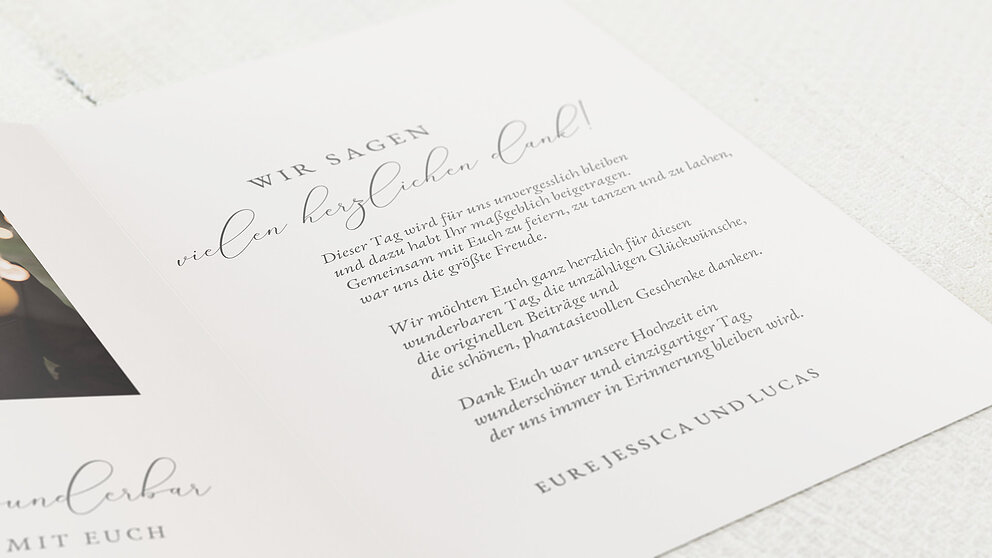 WIR SAGEN
vielen herzlichen dank!
Dieser Tag wird für uns unvergesslich bleiben
und dazu habt Ihr maßgeblich beigetragen.
Gemeinsam mit Euch zu feiern, zu tanzen und zu lachen,
war uns die größte Freude.
Wir möchten Euch ganz herzlich für diesen
wunderbaren Tag, die unzähligen Glückwünsche,
die originellen Beiträge und
die schönen, phantasievollen Geschenke danken.
Dank Euch war unsere Hochzeit ein
wunderschöner und einzigartiger Tag,
der uns immer in Erinnerung bleiben wird.
EURE JESSICA UND LUCAS
MIT EUCH